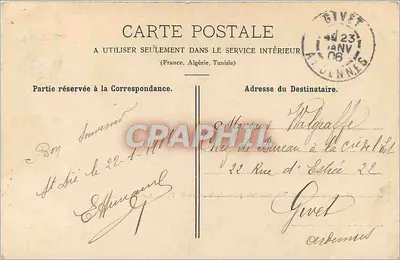 CARTE POSTALE
A UTILISER SEULEMENT DANS LE SERVICE INTÉRIEUR
(France, Algérie, Tunisie)
GIVET
23
JANV
06
ARDENNES
Partie réservée à la Correspondance.
Adresse du Destinataire.
Bon Souvenir
St Dié le 22-1-
Monsieur
Bureau à la
22 Rue d' 22
Givet
Ardennes
CPAPHIL